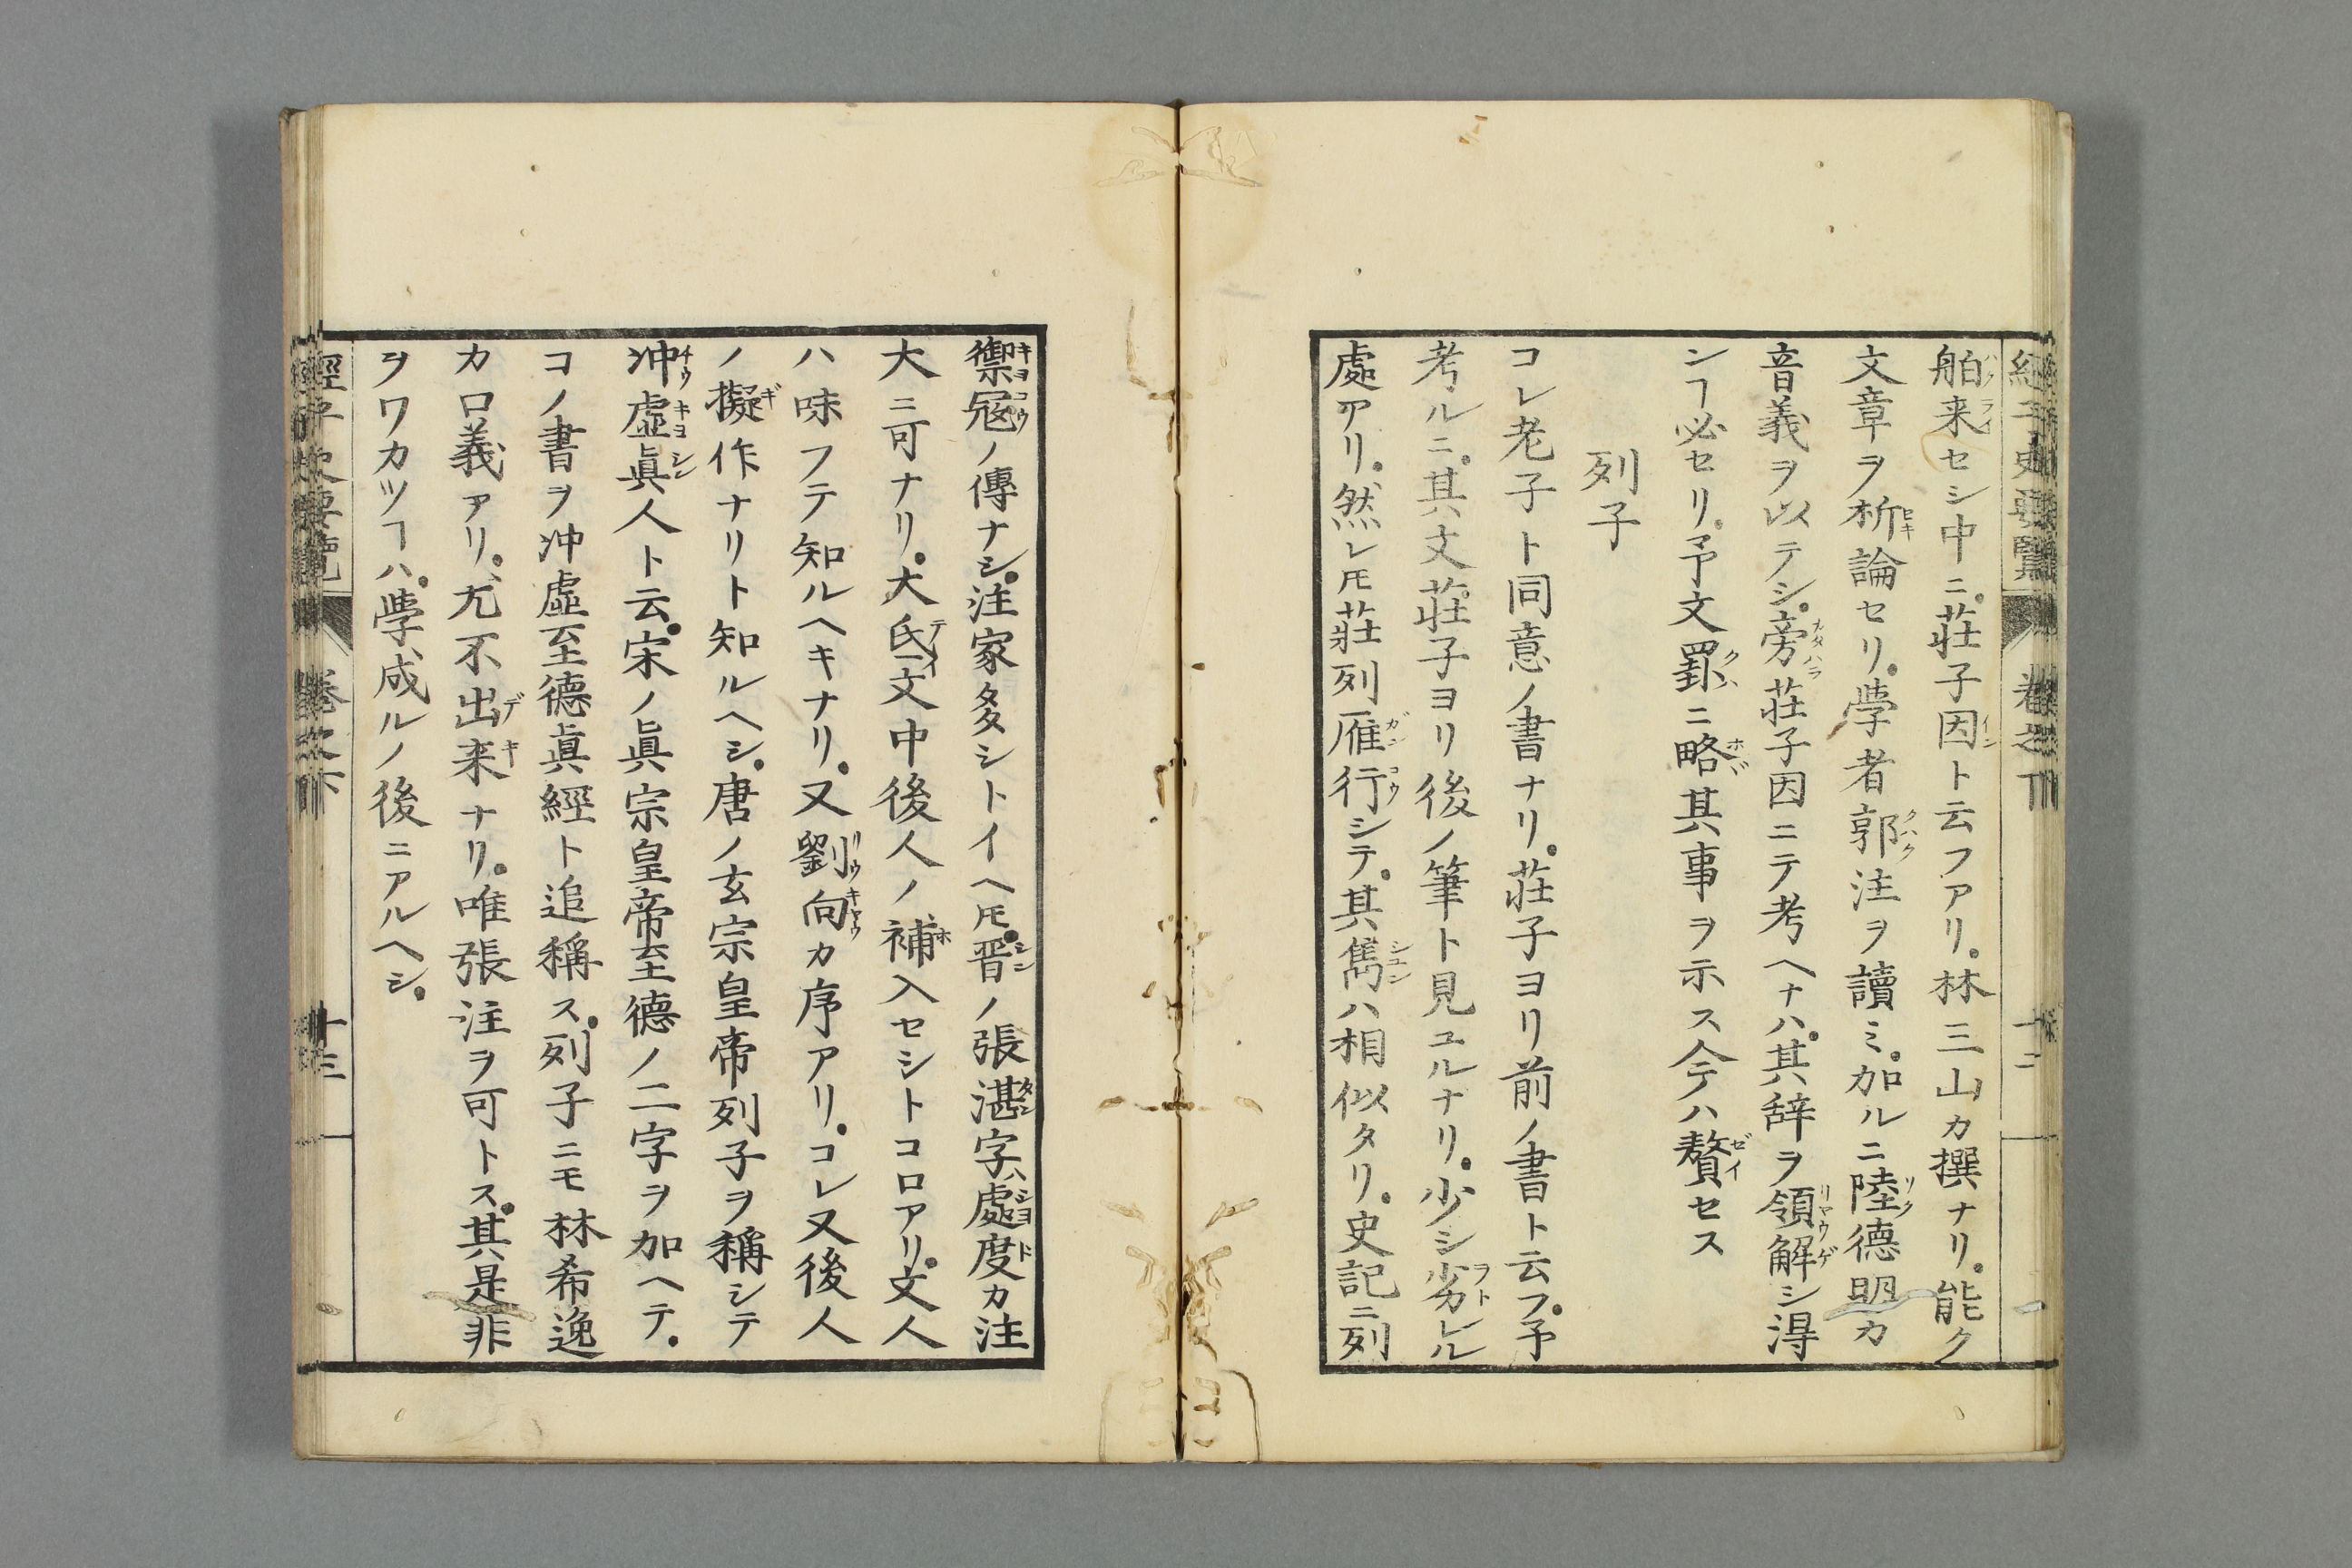 經子史要覽 卷之下 十二
舶来セシ中ニ。莊子因ト云フアリ。林三山カ撰ナリ。能ク
文章ヲ析論セリ。學者郭注ヲ讀ミ。加ルニ陸德明カ
音義ヲ以テシ。旁莊子因ニテ考ヘナハ。其辞ヲ領解シ得
ンヿ必セリ。予文罫ニ略其事ヲ示ス今ハ贅セス
列子
コレ老子ト同意ノ書ナリ。莊子ヨリ前ノ書ト云フ。予
考ルニ。其文莊子ヨリ後ノ筆ト見ユルナリ。少シ劣レル
處アリ。然レ𪜈莊列雁行シテ。其雋ハ相似タリ。史記ニ列
禦寇ノ傳ナシ。注家多シトイヘ𪜈。晋ノ張湛字ハ處度カ注
大ニ可ナリ。大氐文中後人ノ補入セシトコロアリ。文人
ハ味フテ知ルヘキナリ。又劉向カ序アリ。コレ又後人
ノ擬作ナリト知ルヘシ。唐ノ玄宗皇帝列子ヲ稱シテ
冲虛眞人ト云。宋ノ眞宗皇帝至德ノ二字ヲ加ヘテ。
コノ書ヲ冲虛至德眞經ト追稱ス。列子ニモ林希逸
カ口義アリ。尤不出来ナリ。唯張注ヲ可トス。其是非
ヲワカツヿハ。學成ルノ後ニアルヘシ。
經子史要覽 卷之下 十三